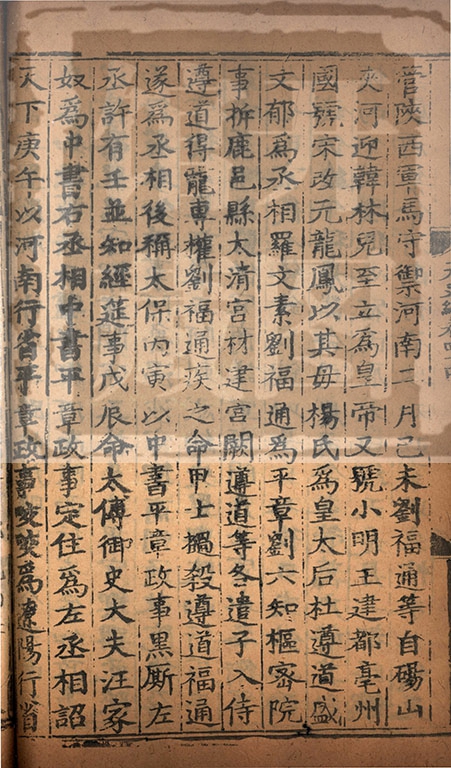 管陝西軍馬守禦河南二月己未劉福通等自碭山
夾河迎韓林兒至立爲皇帝又號小明王建都亳州
國號宋改元龍鳳以其毋楊氏爲皇太后杜遵道盛
文郁爲丞相羅文素劉福通爲平章劉六知樞密院
事拆鹿邑縣太清宮材建宮闕遵道等各遣子入侍
遵道得寵專權劉福通疾之命甲士撾殺遵道福通
遂爲丞相後稱太保丙寅以中書平章政事黑厮左
丞許有壬並知經筵事戊辰命太傅御史大夫汪家
奴爲中書右丞相中書平章政事定住爲左丞相詔
天下庚午以河南行省平章政事咬咬爲遼陽行省